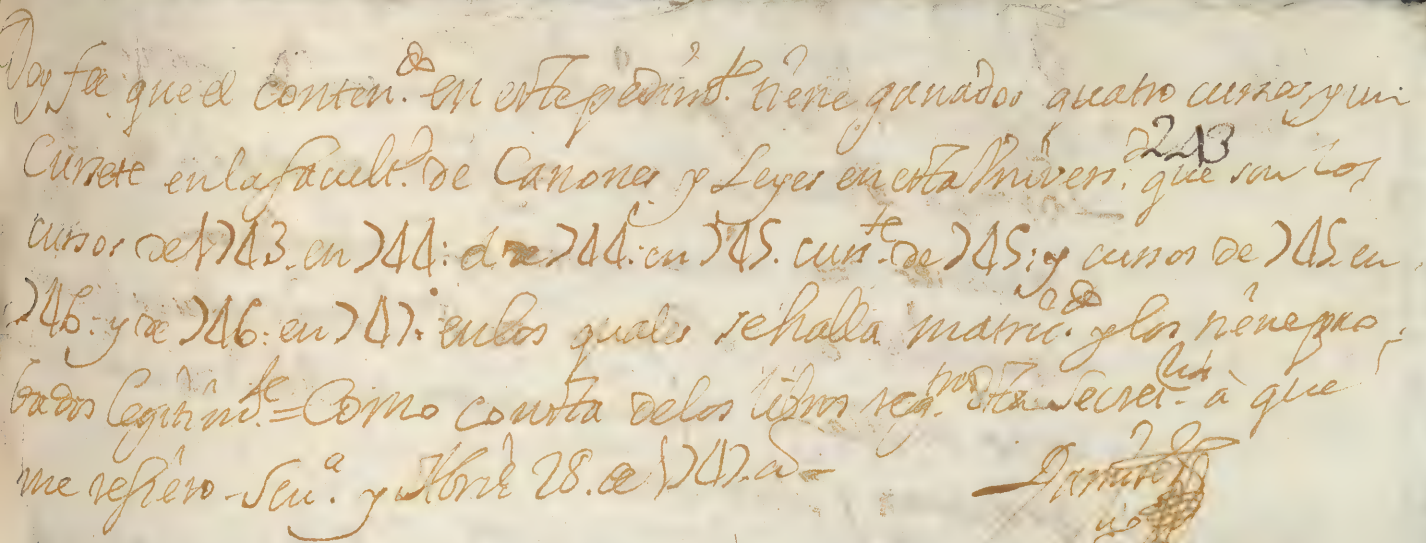 Doy fee que el conten.do en este pedim.to tiene ganados quatro cursos, y un
Cursete en la facult.d de Canones y Leyes en esta Univers.d que son los
243
cursos de 1743. en 744: de 744: en 745. curs.te de 745: y cursos de 745. en
746: y de 746: en 747: en los quales se halla matric.do y los tiene pro,
bados legitim.te = Como consta de los libros reg.tros desta Secret.ria à que
me refiero - Seu.a y Abril 28. de 1747. a.s